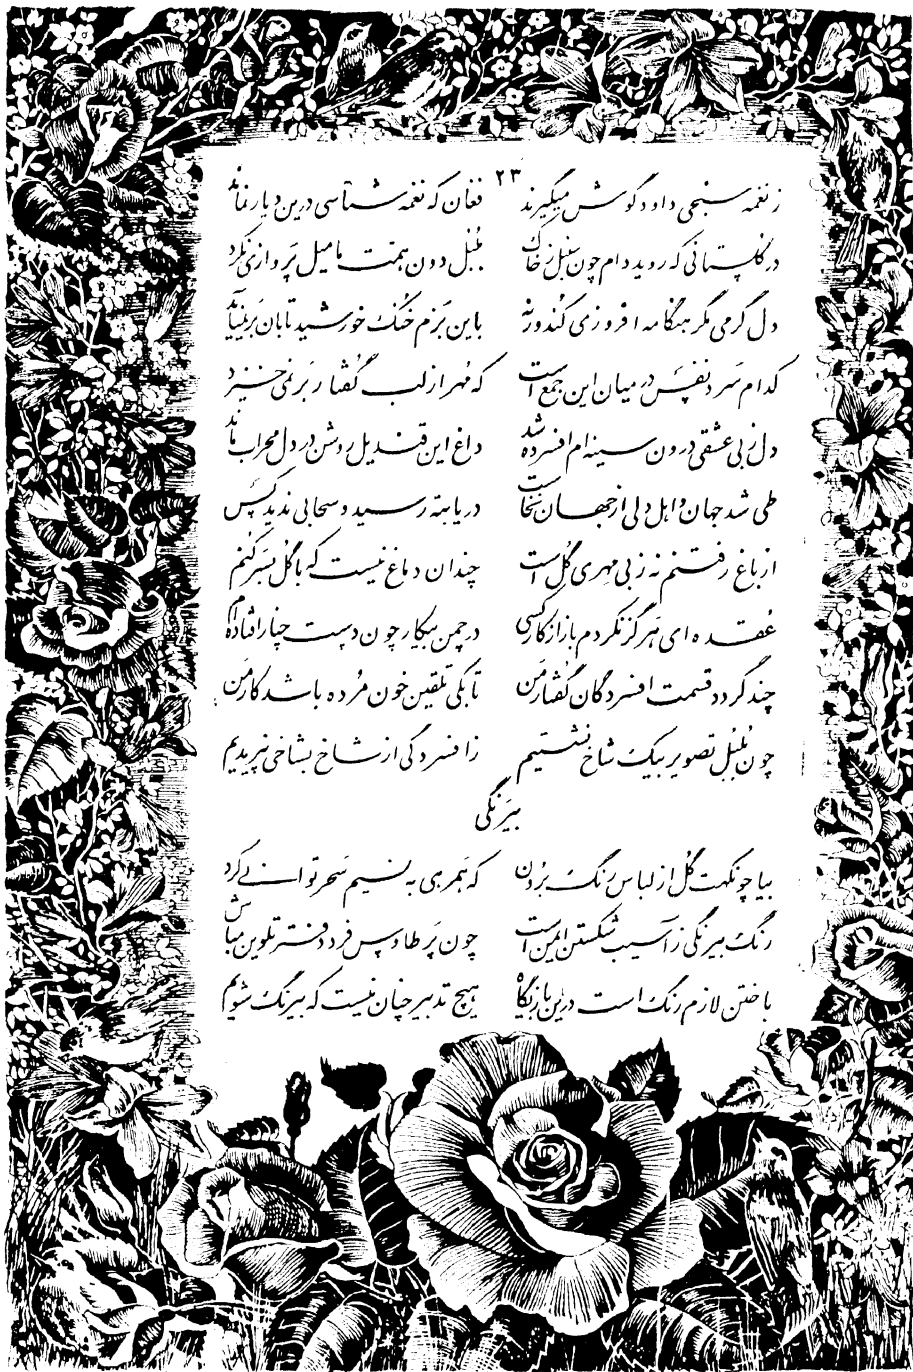 ۲۳
ز نغمه سنجی داود گوش میگیرند فغان که نغمه شناسی درین دیار نماند
در گلستانی که روید دام چون سنبل ز خاک بلبل دون همت ما میل پروازی نکرد
دل گرمی مگر هنگامه افروزی کند ورنه باین بزم خنک خورشید تابان بر نمیآید
کدام سرد نفس در میان این جمع است که مهر از لب گفتار بر نمی خیزد
دل ز بی عشقی درون سینه ام افسرده شد داغ این قندیل روشن در دل محراب ماند
طی شد جهان و اهل دلی از جهان نخاست دریا بته رسید و سحابی ندید کس
از باغ رفتنم نه ز بی مهری گل است چندان دماغ نیست که با گل بسر کنم
عقده ای هرگز نکردم باز از کار کسی در چمن بیکار چون دست چنار افتاده ام
چند گردد قسمت افسردگان گفتار من تا بکی تلقین خون مرده باشد کار من
چون بلبل تصویر بیک شاخ نشستیم ز افسردگی از شاخ بشاخی نپریدیم
بیرنگی
بیا چو نکهت گل از لباس رنگ بر دن که همرهی به نسیم سحر توانی کرد
رنگ بیرنگی ز آسیب شکستن ایمن است چون پر طاوس فرد دفتر تلوین مباش
باختن لازم رنگ است درین بازیگاه هیچ تدبیر چنان نیست که بیرنگ شویم